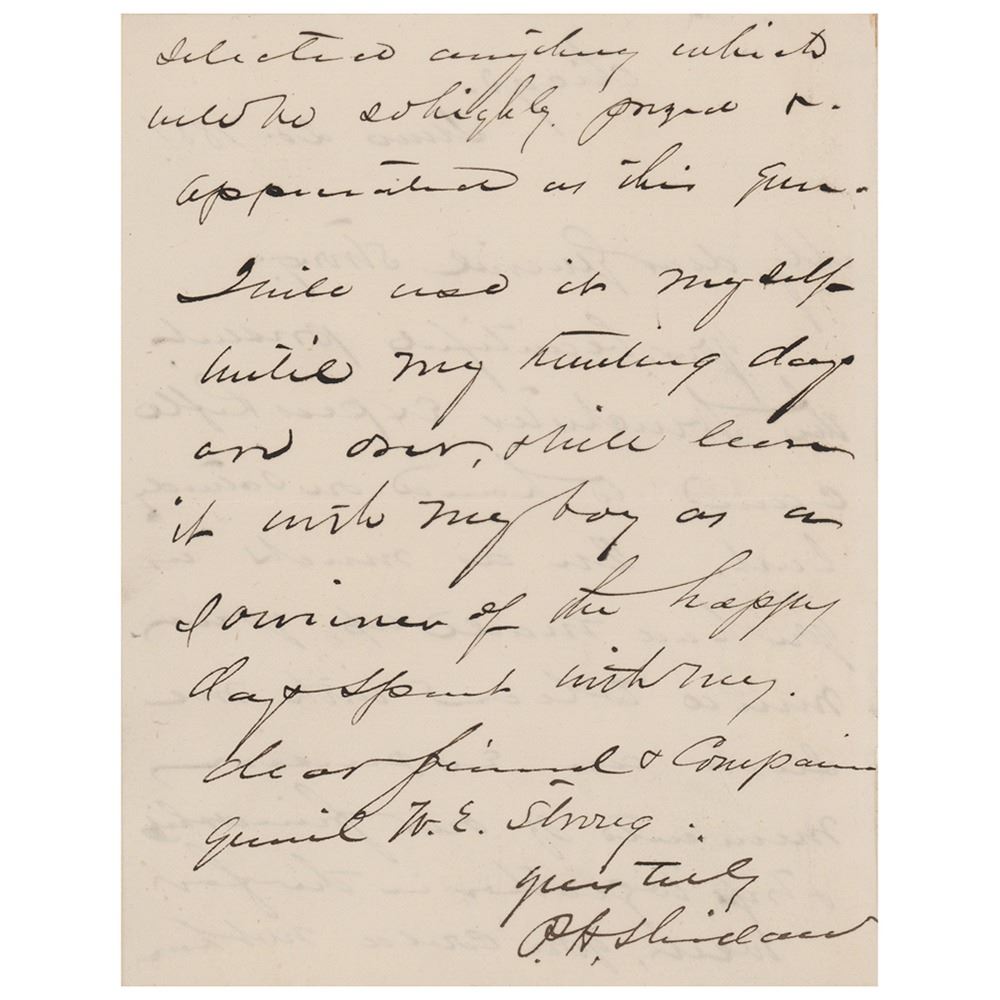 selected anything which
would be so highly prized &
appreciated as this gun.
I will use it myself
until my hunting days
are over, & will leave
it with my boy as a
souviner of the happy
days spent with my
dear friend & Companion
Genril W. E. Strong.
yours truly
P. H. Sheridan